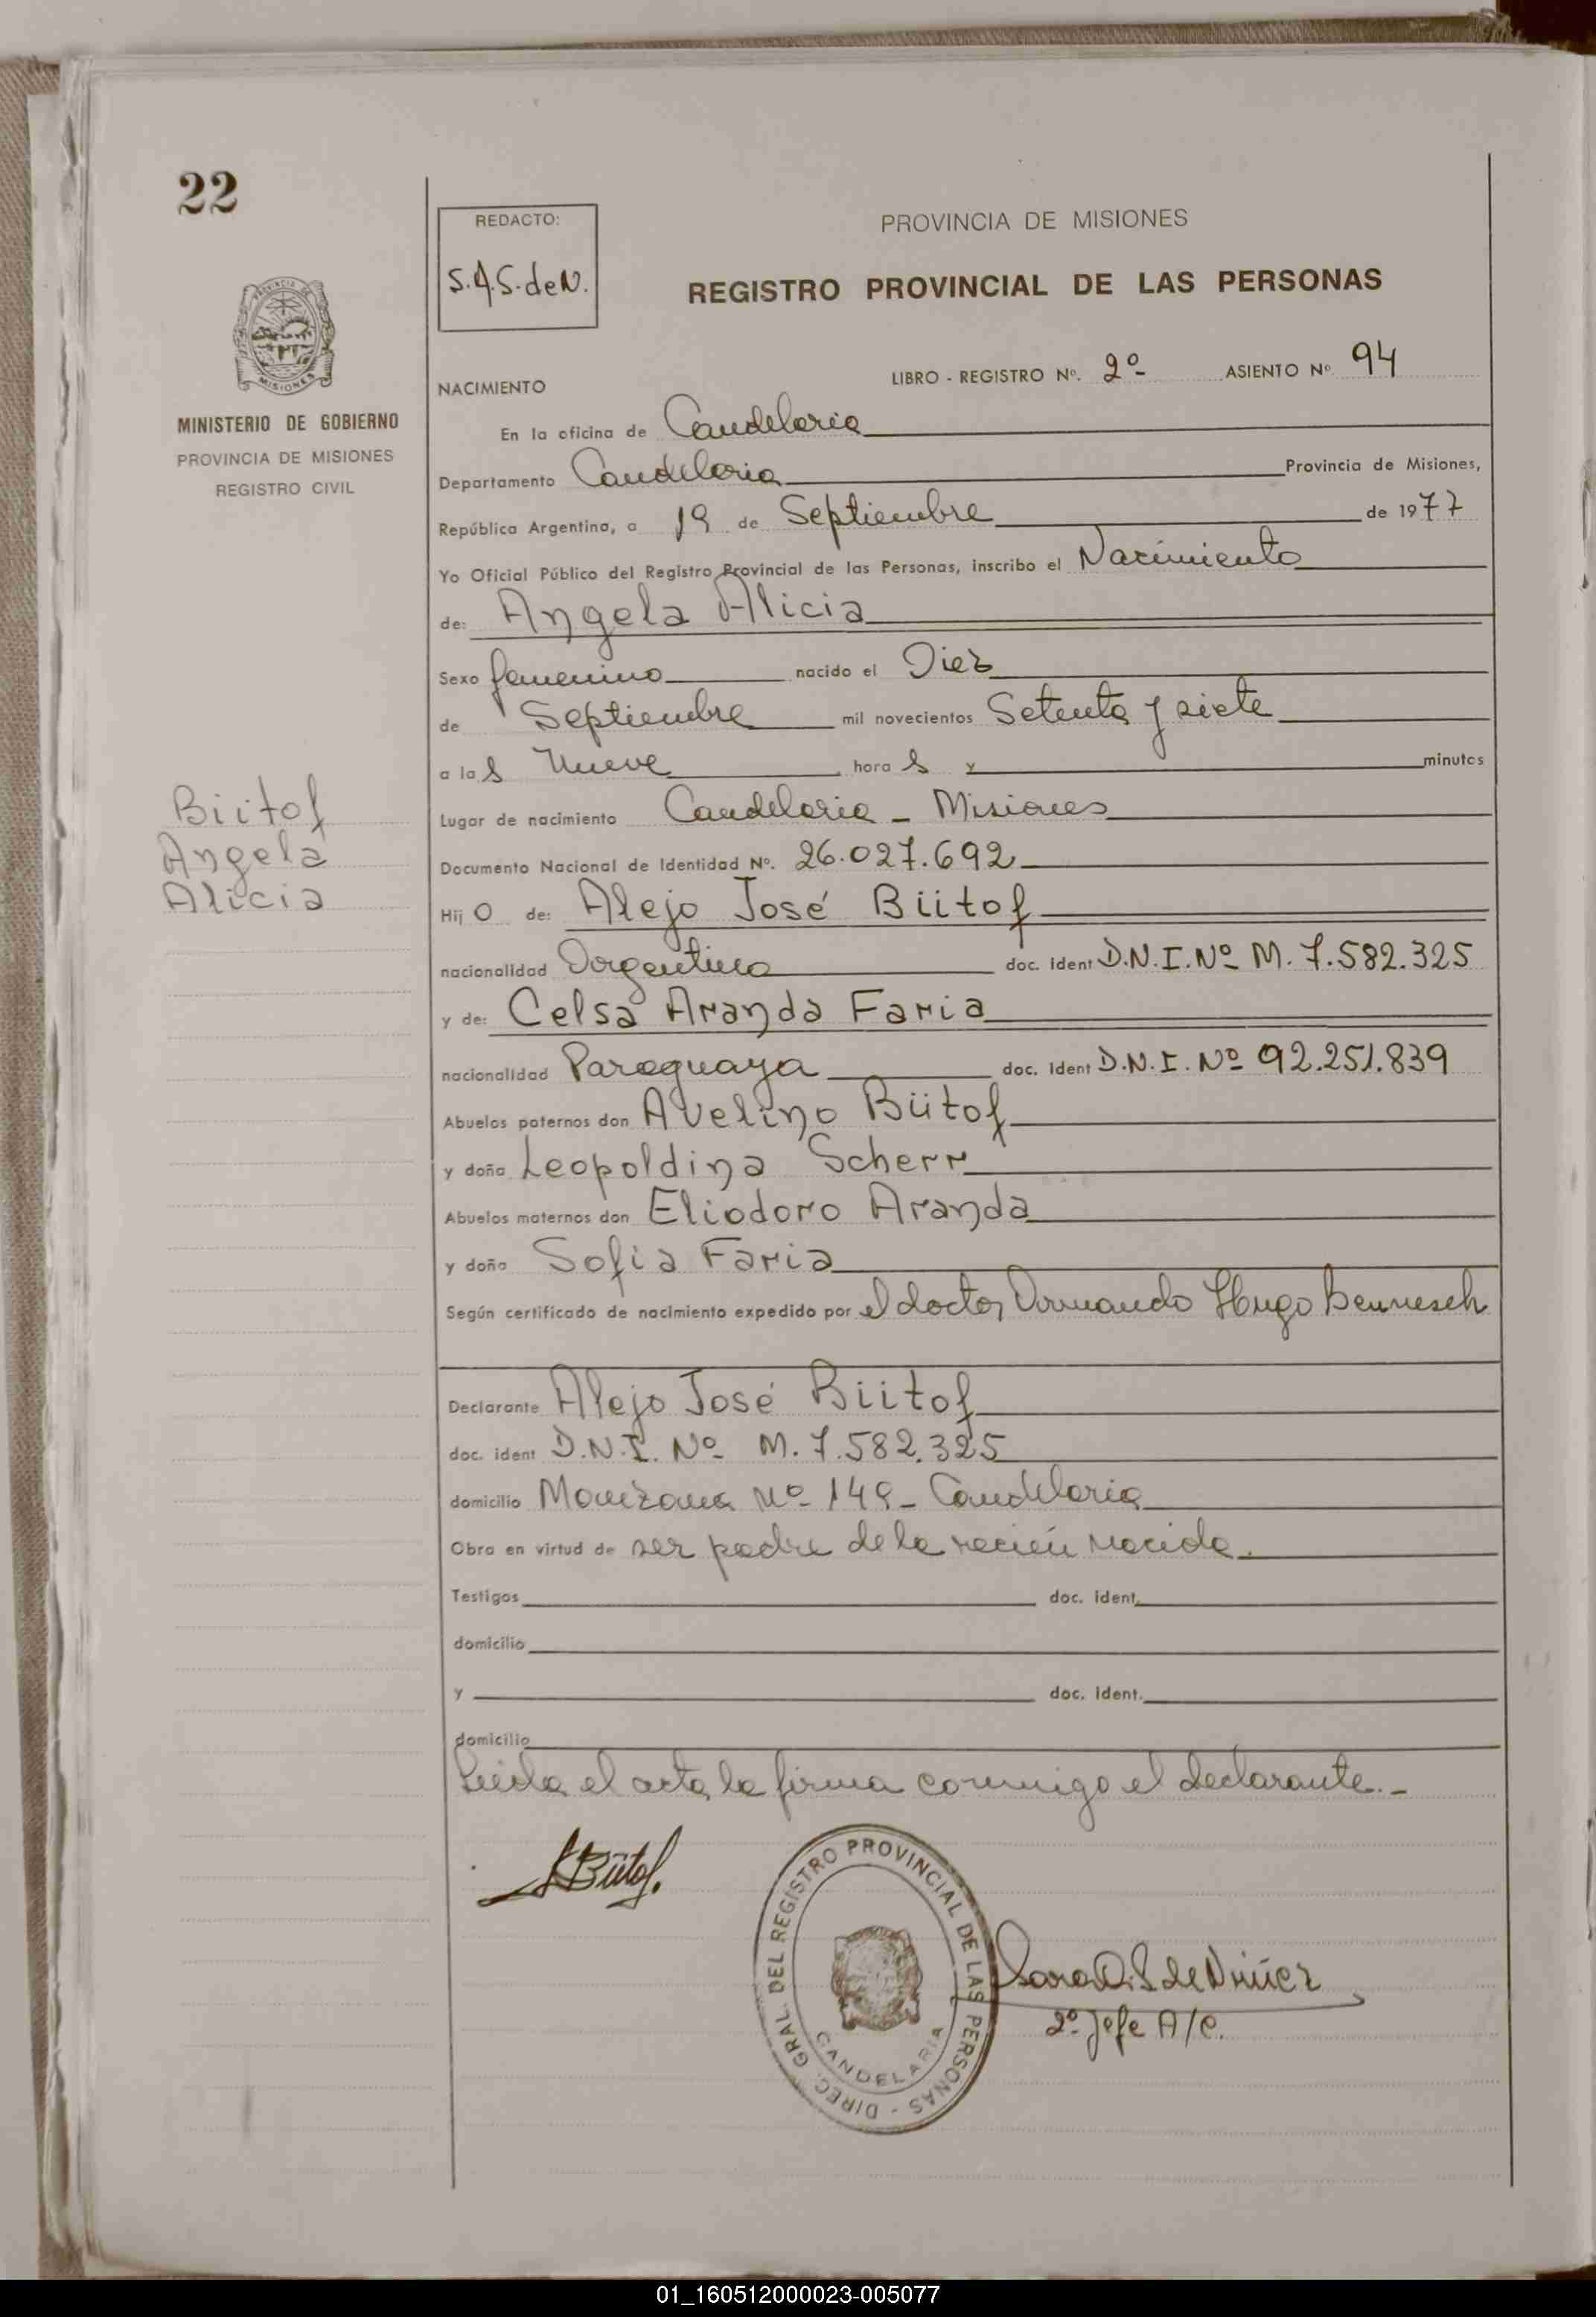 22
REDACTO:
S.A.S. de N.
PROVINCIA DE MISIONES
REGISTRO PROVINCIAL DE LAS PERSONAS
PROVINCIA DE
MISIONES
MINISTERIO DE GOBIERNO
PROVINCIA DE MISIONES
REGISTRO CIVIL
LIBRO - REGISTRO Nº. 2º- ASIENTO Nº 94
NACIMIENTO
En la oficina de Candelaria
Departamento Candelaria Provincia de Misiones,
República Argentina, a 19 de Septiembre de 1977
Yo Oficial Público del Registro Provincial de las Personas, inscribo el Nacimiento
de: Angela Alicia
Sexo femenino nacido el Diez
de Septiembre mil novecientos Setenta y siete
a las Nueve horas y minutos
Lugar de nacimiento Candelaria - Misiones
Documento Nacional de Identidad Nº. 26.027.692
Biitof
Angela
Alicia
Hijo de: Alejo José Biitof
nacionalidad Argentina doc. ident D.N.I. Nº M. 7.582.325
y de: Celsa Aranda Faria
nacionalidad Paraguaya doc. ident D.N.I. Nº 92.251.839
Abuelos paternos don Avelino Bütof
y doña Leopoldina Scherr
Abuelos maternos don Eliodoro Aranda
y doña Sofia Faria
Según certificado de nacimiento expedido por el doctor Armando Hugo Bennesch
Declarante Alejo José Biitof
doc. ident D.N.I. Nº M. 7.582.325
domicilio Manzana Nº 149 - Candelaria
Obra en virtud de ser padre de la recién nacida.
Testigos doc. ident.
domicilio
y doc. ident.
domicilio
Leida el acta, la firma conmigo el declarante.-
A Bütof.
DIREC. GRAL. DEL REGISTRO PROVINCIAL DE LAS PERSONAS -
CANDELARIA
Sara A. S. de Núñez
2º Jefe A/C.
01_160512000023-005077